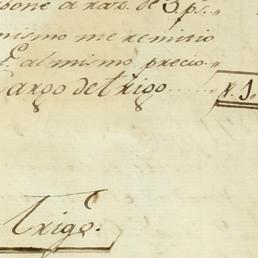 pone a raz. de 3 p.s
mismo me remitio
al mismo precio.
Cargo de trigo......
Trigo.